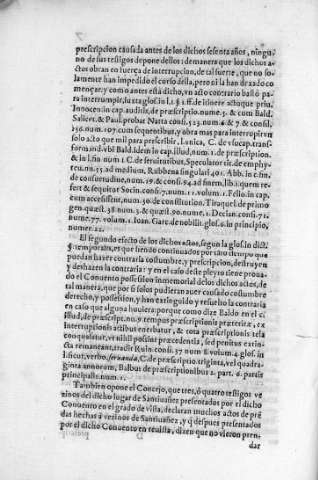 prescripcion causada antes de los dichos sesenta años, ningu
no de sus testigos depone dellos: de manera que los dichos a-
ctos obran en fuerça de interrupcion, de tal suerte, que no so-
lamente han impedido el curso della, pero ni la han dexado co
mençar, y como antes està dicho, vn acto contrario bastò pa-
ra interrumpir, iuxta glos. in l. 1. § 1. ff. de itinere actuque priu.
Innocen. in cap. auditis, de præscriptio. nume. 5. & cum Bald.
Salicet. & Paul. probat Natta consil. 523. num. 6. & 7. & consil.
236. num. 107. cum sequentibus, y obra mas para interrupir vn
solo acto que mil para prescribir.
form. ind. vbi Bald. idem in cap. illud, num. 1. de præscription.
& in l. fin. num 1. C. de seruitutibus, Speculator tit. de emphy-
teu. nu. 53. ad medium, Rubbena singulari 401. Abb. in c. fin.
de consuetudine, num. 18. & cons. 94. ad finem, lib. 2. quem re-
fert & sequitur Socin. cons. 7. num. 11. volum. 1. Felin. in cap.
cum accessissent, num. 30. de constitution. Tiraquel. de primo-
gen. quæst. 38. num. 3. & quæst. 90. nume. 1. Decian. cons. 71.
nume. 77. volum. 1. Ioan. Garc. de nobilit. glos. 6. in principio,
numer. 22.
El segundo efecto de los dichos actos, segun la glos. in dict.
§. temporalis, es que siendo continuados por tãto tiempo que
puedan hazer contraria costumbre, y prescripcion, destruyen
y deshazen la contraria: y en el caso deste pleyto tiene proua-
do el Conuento possession inmemorial de los dichos actos, de
tal manera, que por si solos pudieran auer causado costumbre
derecho, y possession, y han extinguido y resuelto la contraria
en caso que alguna huuiera: porque como dize Baldo en el ca.
illud, de præscript. no. 9. tempus præscriptionis præteritæ, ex
interruptionis actibus eneruatur, & tota præscriptionis tela
conquassatur, vt nihil possint præcedentia, sed penitus extin-
cta remaneant, tradit Ruin. cons. 37. num 8. volum. 4. glos. in
l. sicut, verbo, seruanda, C. de præscriptio. triginta, vel quadra-
ginta annorum, Balbus de præscriptionibus 2. part. 6. partis
principalis num. 1.
Tambien opone el Concejo, que tres, ò quatro testigos ve
zinos del dicho lugar de Santiuañez presentados por el dicho
Conuento en el grado de vista, declaran muchos actos de prẽ
das hechas à vezinos de Santiuañez, y q̃ despues presentados
por el dicho Conuento en reuista, dizen que no vieron pren-
dar